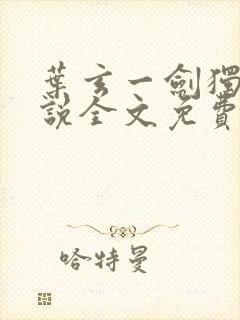 葉玄一劍獨
說全文免費
哈特曼